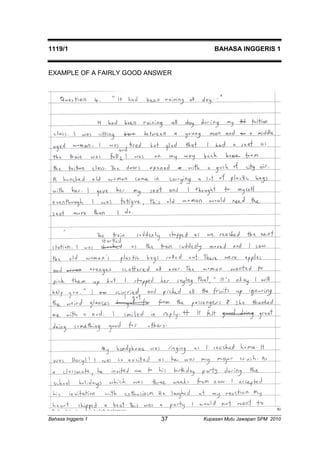 1119/1 BAHASA INGGERIS 1
EXAMPLE OF A FAIRLY GOOD ANSWER
Question 4. "It had been raining all day."
It had been raining all day during my tuition
class. I was sitting between a young man and a middle
aged woman. I was tired but glad that I had a seat as
and
the train was full, I was on my way back from
the tuition class. The doors opened with a gush of city air.
A hunched old woman came in carrying a lot of plastic bags
with her. I gave her my seat and I thought to myself
eventhough I was fatigue, this old woman would need the
seat more than I do.
The train suddenly stopped as we reached the next
startled
station. I was as the train suddenly moved and I saw
the old woman's plastic bags rolled out. There were apples
and oranges scattered all over. The woman wanted to
pick them up but I stopped her saying that, "It's okay I will
help you." I am hurried and picked all the fruits up ignoring
got
the weird glances from the passengers. She thanked
me with a nod. I smiled in reply. It felt great
doing something good for others.
My handphone was ringing as I reached home. It
was Daryl! I was so excited as he was my major crush. As
a classmate, he invited me to his birthday party during the
school holidays which was three weeks from now. I accepted
his invitation with enthusiasm. He laughed at my reaction. My
heart skipped a beat. This was a party I would not want to
Bahasa Inggeris 1 37 Kupasan Mutu Jawapan SPM 2010